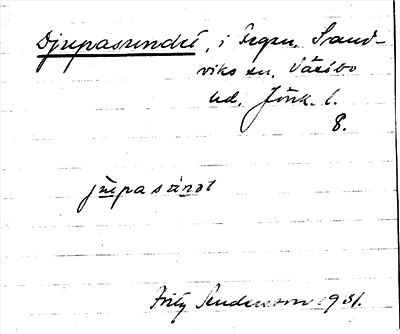 Djupasundet, i Fegen, Sand-
viks sn, Västbo
hd, Jönk. l.
8.
jupasúnət
Fritz Andersson 1931.